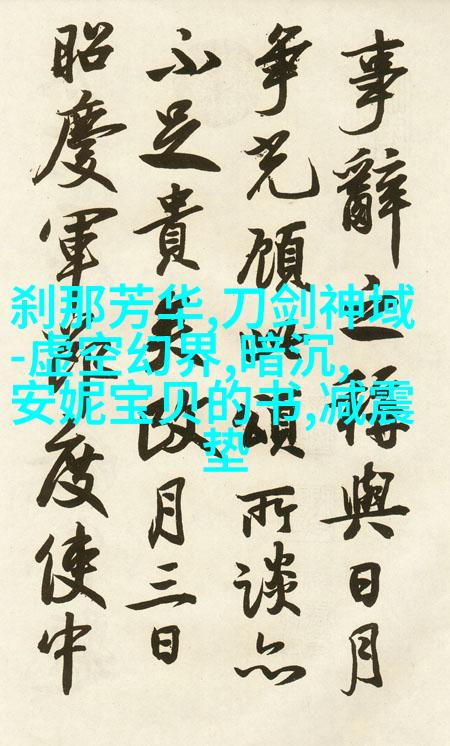 事辭之稱與日月
爭光顧頌所談亦
不足貴矣改月三日
昭慶軍節度使中
刹那芳华,刀剑神域
-虚空幻界,暗沉,
安妮宝贝的书,减震
垫